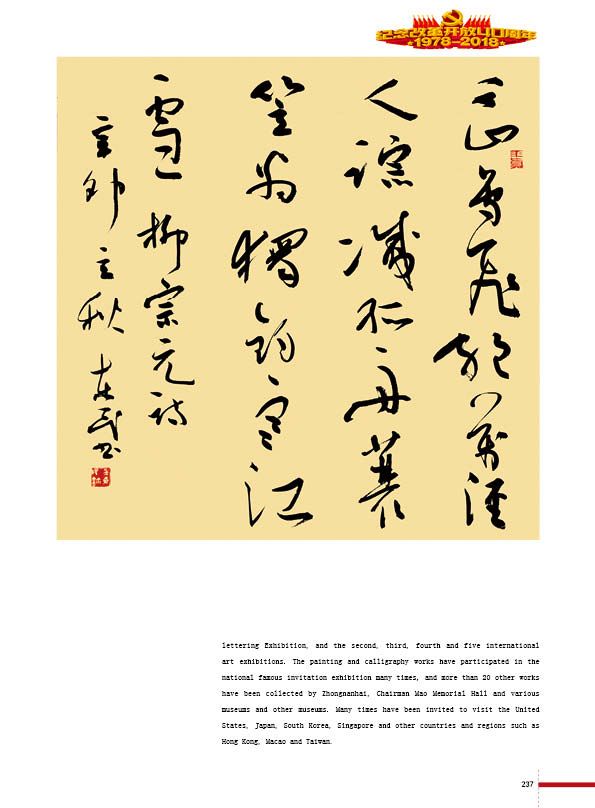 纪念改革开放40周年
1978-2018
千山鳥飛絕萬徑
人踪滅孤舟蓑
笠翁獨釣寒江
雪 柳宗元詩
辛卯立秋 民书
lettering Exhibition, and the second, third, fourth and five international
art exhibitions. The painting and calligraphy works have participated in the
national famous invitation exhibition many times, and more than 20 other works
have been collected by Zhongnanhai, Chairman Mao Memorial Hall and various
museums and other museums. Many times have been invited to visit the United
States, Japan, South Korea, Singapore and other countries and regions such as
Hong Kong, Macao and Taiwan.
237